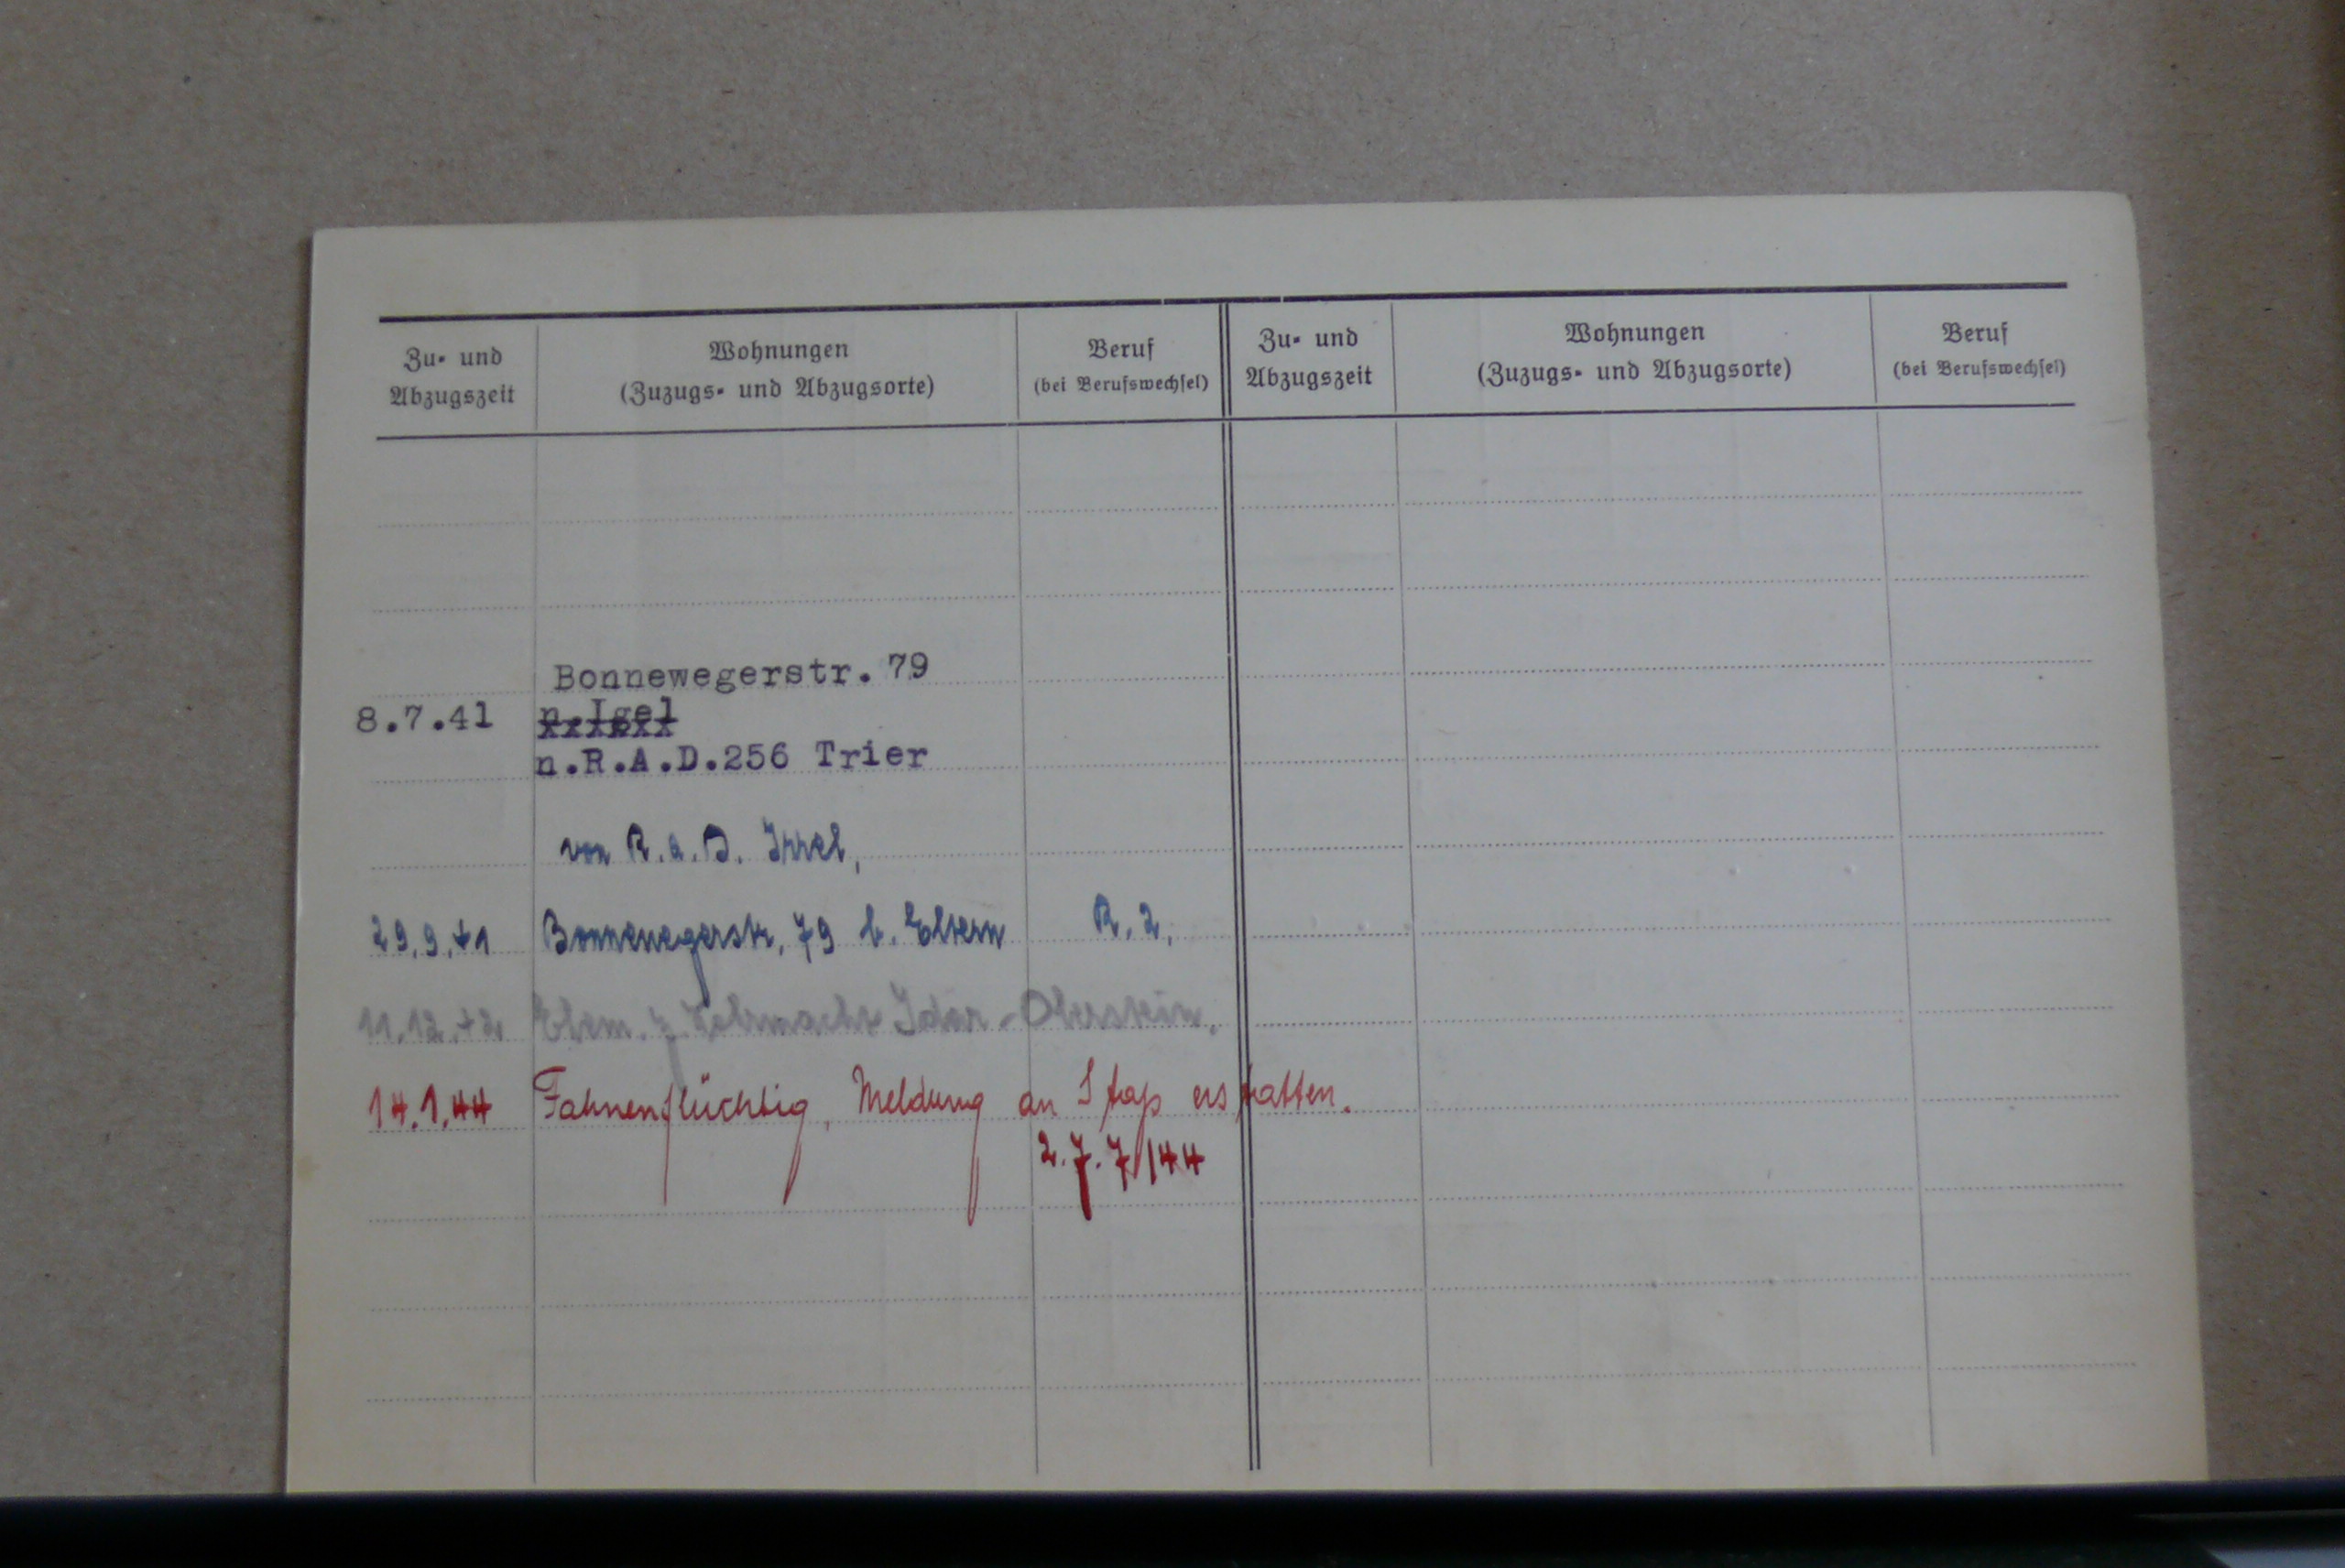 Zu- und Abzugszeit
Wohnungen
(Zuzugs- und Abzugsorte)
Beruf
(bei Berufswechsel)
Zu- und Abzugszeit
Wohnungen
(Zuzugs- und Abzugsorte)
Beruf
(bei Berufswechsel)
Bonnewegerstr. 79
8.7.41 n.Igel
n.R.A.D.256 Trier
von R.a.D. Irrel,
29.9.41 Bonnewegerstr. 79 b. Eltern R. 2.
11.12.42 z. Wehrmacht Idar-Oberstein.
14.1.44 Fahnenflüchtig, Meldung an Stapo erstatten.
2.7.7/44